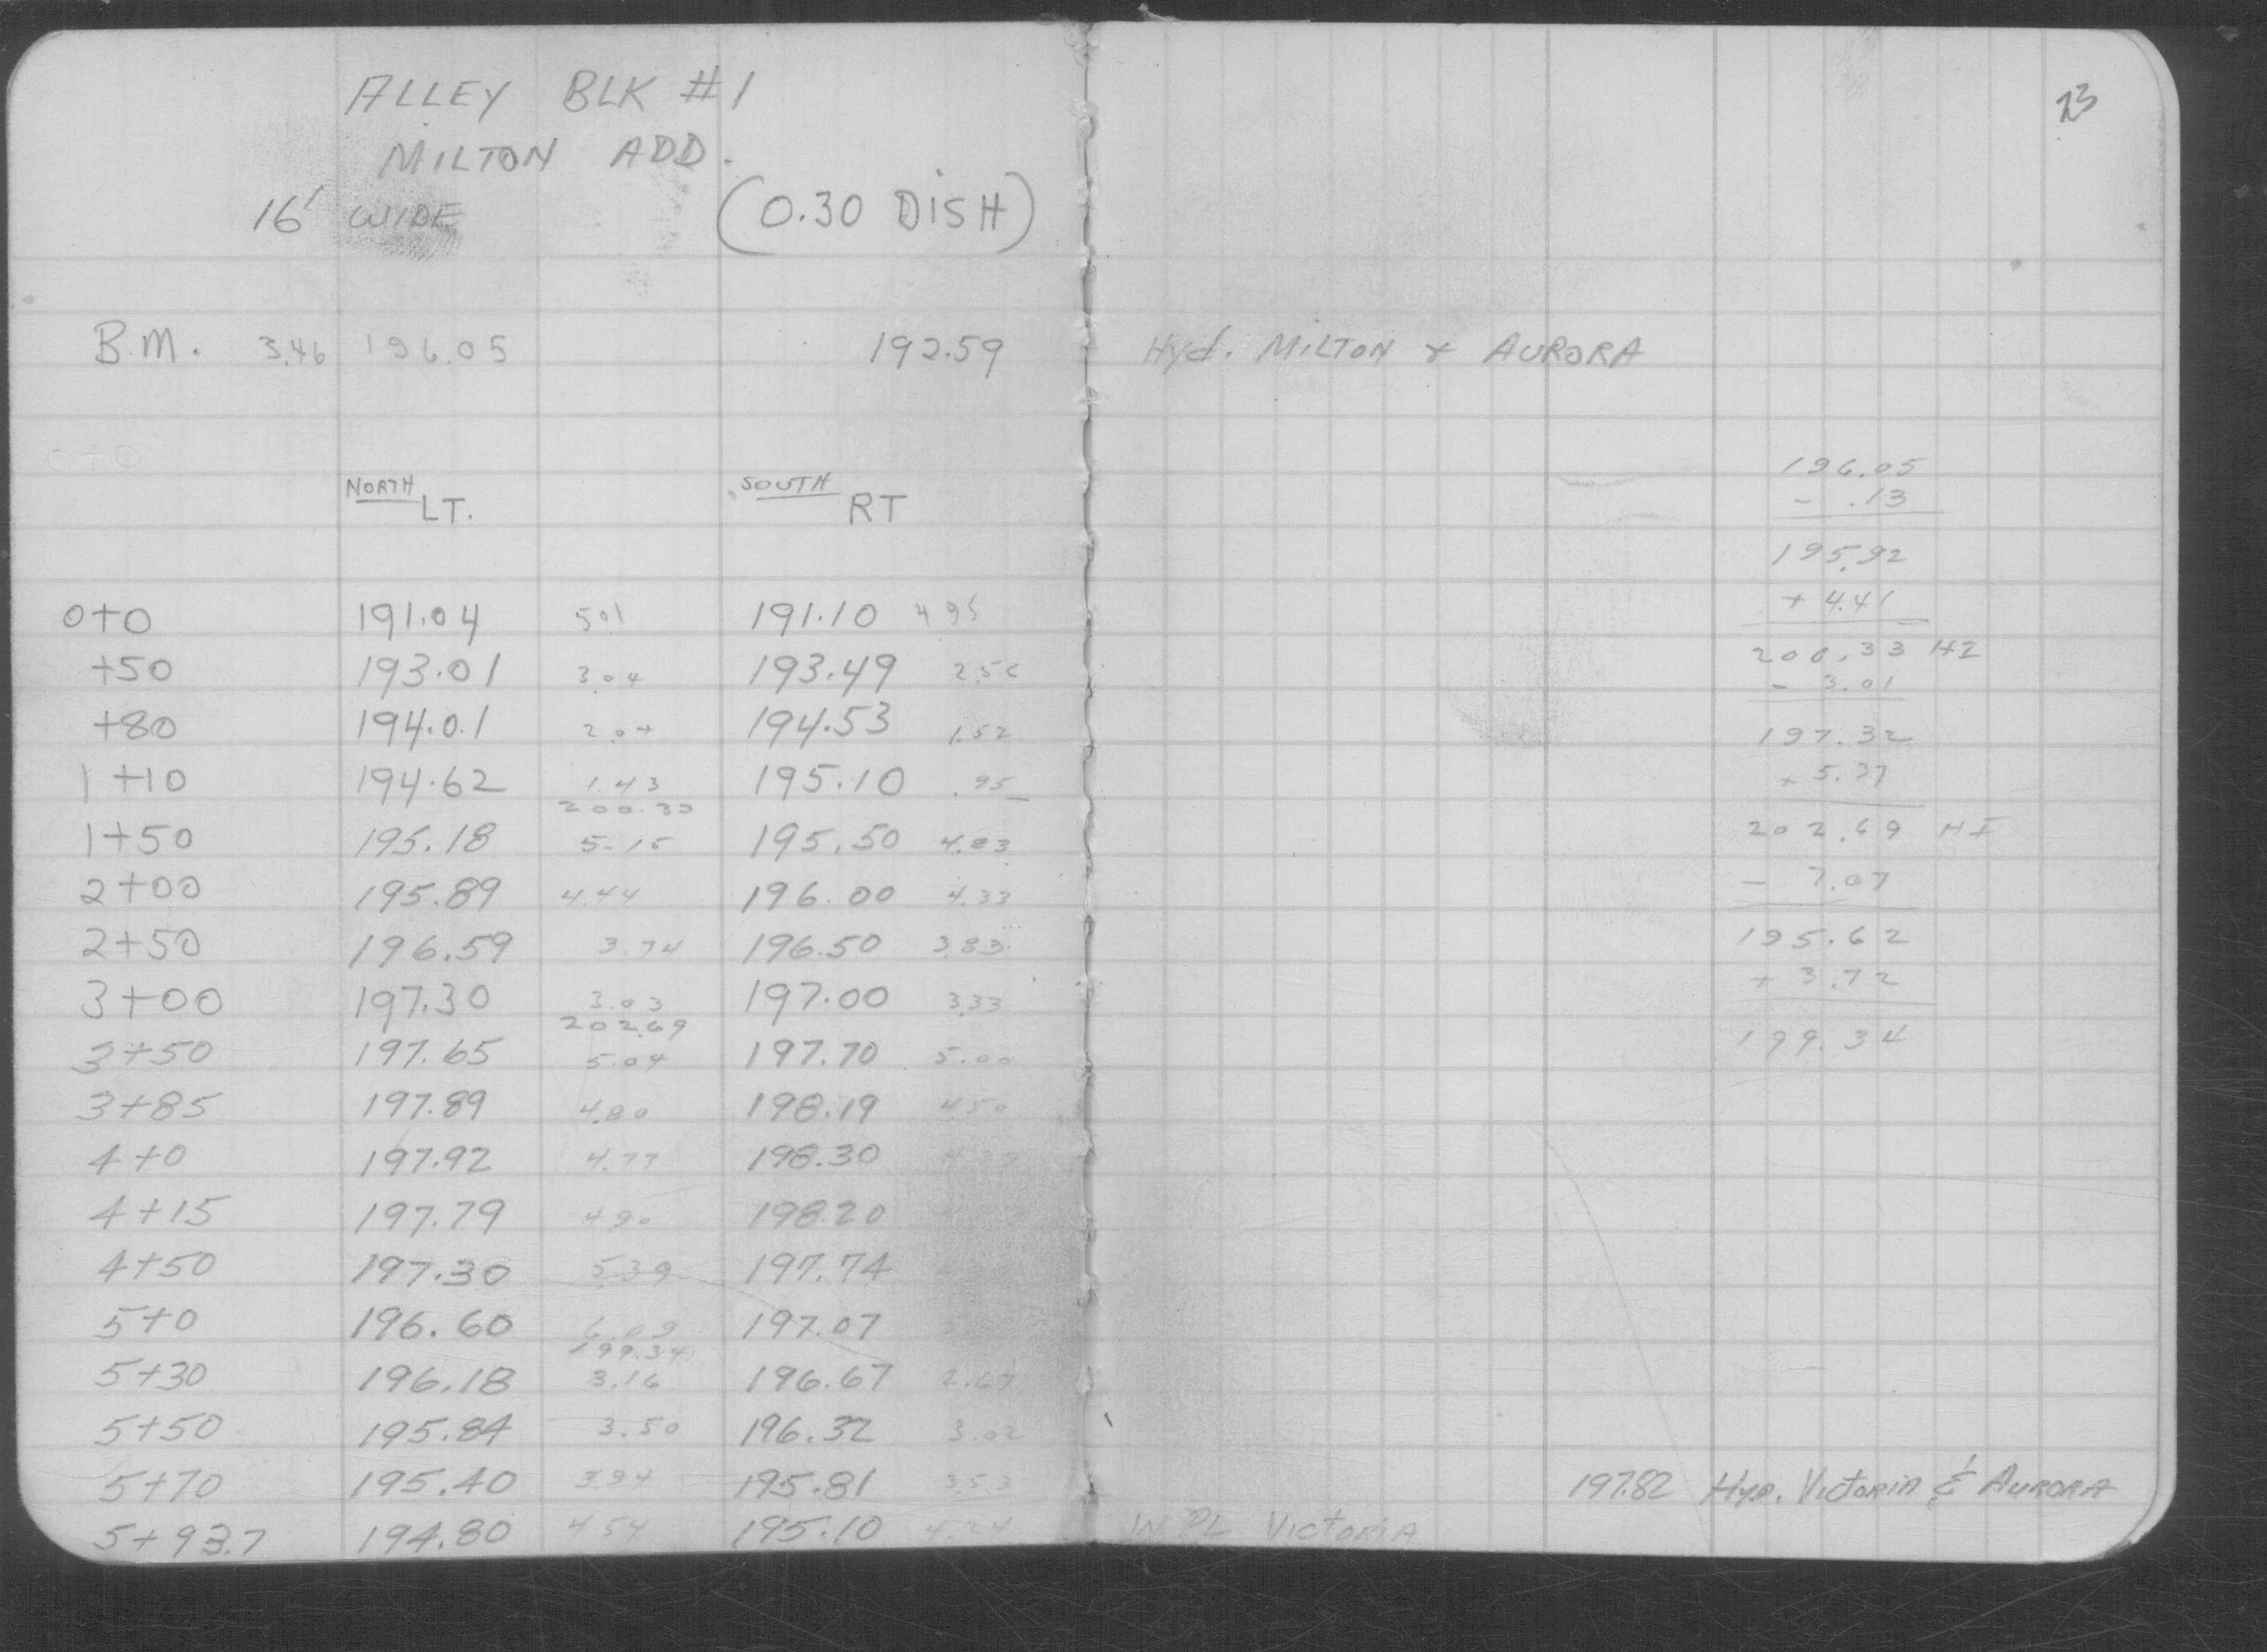 23
ALLEY BLK #1
MILTON ADD.
16' WIDE (0.30 DISH)
B.M. 3.46 196.05 192.59 Hyd. MILTON & AURORA
0+0
NORTH LT. SOUTH RT
0+0 191.04 5.01 191.10 4.95
+50 193.01 3.04 193.49 2.56
+80 194.01 2.04 194.53 1.52
1+10 194.62 1.43 195.10 .95
200.33
1+50 195.18 5.15 195.50 4.83
2+00 195.89 4.44 196.00 4.33
2+50 196.59 3.74 196.50 3.83
3+00 197.30 3.03 197.00 3.33
202.69
3+50 197.65 5.04 197.70 5.00
3+85 197.89 4.80 198.19 4.50
4+0 197.92 4.77 198.30
4+15 197.79 4.90 198.20
4+50 197.30 5.39 197.74
5+0 196.60 6.09 197.07
199.34
5+30 196.18 3.16 196.67 2.67
5+50 195.84 3.50 196.32 3.02
5+70 195.40 3.94 195.81 3.53
5+93.7 194.80 4.54 195.10 4.24 W PL Victoria
196.05
- .13
195.92
+ 4.41
200.33 HI
- 3.01
197.32
+ 5.37
202.69 HI
- 7.07
195.62
+ 3.72
199.34
197.82 Hyd. Victoria & Aurora